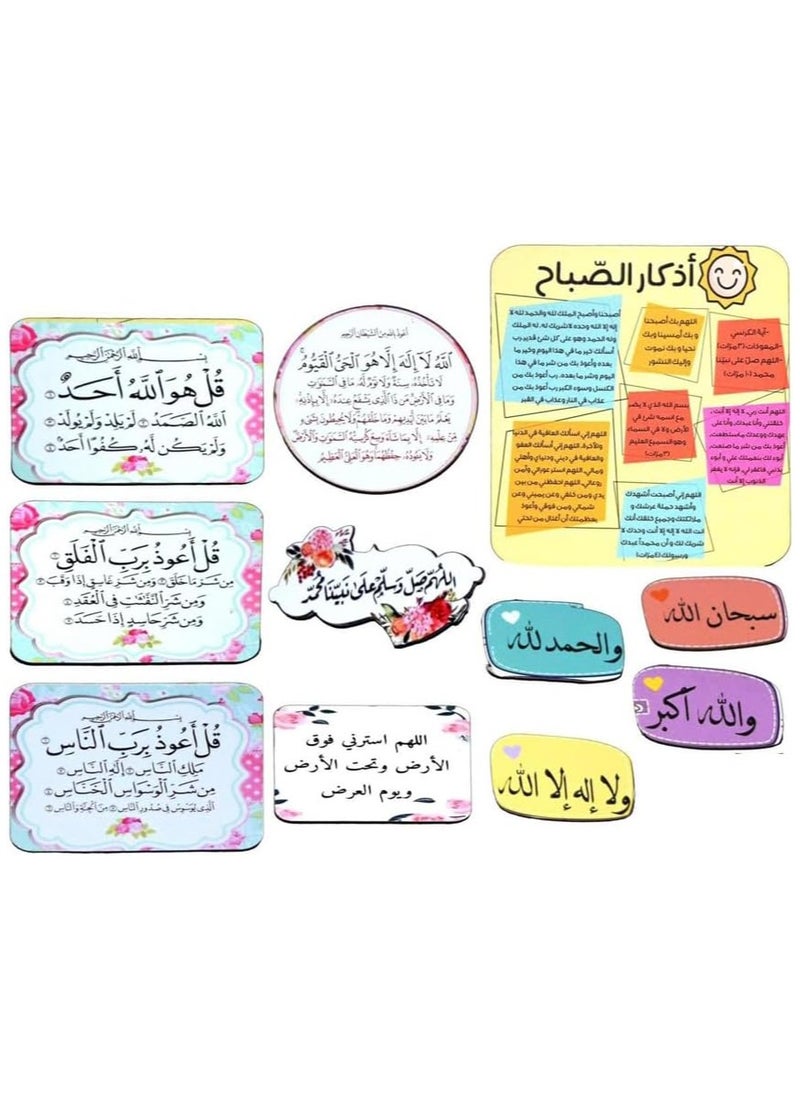 بسم الله الرحمن الرحيم
قُلْ هُوَ ٱللَّهُ أَحَدٌ ١
ٱللَّهُ ٱلصَّمَدُ ٢ لَمْ يَلِدْ وَلَمْ يُولَدْ ٣
وَلَمْ يَكُن لَّهُۥ كُفُوًا أَحَدٌۢ ٤
بسم الله الرحمن الرحيم
قُلْ أَعُوذُ بِرَبِّ ٱلْفَلَقِ ١
مِن شَرِّ مَا خَلَقَ ٢ وَمِن شَرِّ غَاسِقٍ إِذَا وَقَبَ ٣
وَمِن شَرِّ ٱلنَّفَّٰثَٰتِ فِى ٱلْعُقَدِ ٤
وَمِن شَرِّ حَاسِدٍ إِذَا حَسَدَ ٥
بسم الله الرحمن الرحيم
قُلْ أَعُوذُ بِرَبِّ ٱلنَّاسِ ١
مَلِكِ ٱلنَّاسِ ٢ إِلَٰهِ ٱلنَّاسِ ٣
مِن شَرِّ ٱلْوَسْوَاسِ ٱلْخَنَّاسِ ٤
ٱلَّذِى يُوَسْوِسُ فِى صُدُورِ ٱلنَّاسِ ٥ مِنَ ٱلْجِنَّةِ وَٱلنَّاسِ ٦
أعوذ بالله من الشيطان الرجيم
ٱللَّهُ لَآ إِلَٰهَ إِلَّا هُوَ ٱلْحَىُّ ٱلْقَيُّومُ ۚ
لَا تَأْخُذُهُۥ سِنَةٌ وَلَا نَوْمٌ لَّهُۥ مَا فِى ٱلسَّمَٰوَٰتِ
وَمَا فِى ٱلْأَرْضِ مَن ذَا ٱلَّذِى يَشْفَعُ عِندَهُۥٓ إِلَّا بِإِذْنِهِۦ
يَعْلَمُ مَا بَيْنَ أَيْدِيهِمْ وَمَا خَلْفَهُمْ وَلَا يُحِيطُونَ بِشَىْءٍ
مِّنْ عِلْمِهِۦٓ إِلَّا بِمَا شَآءَ وَسِعَ كُرْسِيُّهُ ٱلسَّمَٰوَٰتِ وَٱلْأَرْضَ
وَلَا يَـُٔودُهُۥ حِفْظُهُمَا وَهُوَ ٱلْعَلِىُّ ٱلْعَظِيمُ
اللهم صل وسلم على نبينا محمد
اللهم استرني فوق
الأرض وتحت الأرض
ويوم العرض
أذكار الصّباح
-آية الكرسي
-المعوذات (٣ مرّات)
-اللهم صلّ على نبيّنا
محمد (١٠ مرّات)
اللهم بك أصبحنا
وبك أمسينا وبك
نحيا وبك نموت
وإليك النشور
أصبحنا وأصبح الملك لله والحمد لله لا
إله إلا الله وحده لا شريك له، له الملك
وله الحمد وهو على كل شئ قدير رب
أسألك خير ما في هذا اليوم وخير ما
بعده وأعوذ بك من شر ما في هذا
اليوم وشر ما بعده، رب أعوذ بك من
الكسل وسوء الكبر رب أعوذ بك من
عذاب في النار وعذاب في القبر
بسم الله الذي لا يضر
مع اسمه شئ في
الأرض ولا في السماء
وهو السميع العليم
(٣ مرّات)
اللهم أنت ربي، لا إله إلا أنت،
خلقتني وأنا عبدك، وأنا على
عهدك ووعدك ما استطعت،
أعوذ بك من شر ما صنعت،
أبوء لك بنعمتك علي و أبوء
بذنبي فاغفر لي، فإنه لا يغفر
الذنوب إلا أنت
اللهم إني أسألك العافية في الدنيا
والآخرة، اللهم إني أسألك العفو
والعافية في ديني ودنياي وأهلي
ومالي، اللهم استر عوراتي وآمن
روعاتي، اللهم احفظني من بين
يدي ومن خلفي وعن يميني وعن
شمالي ومن فوقي وأعوذ
بعظمتك أن أغتال من تحتي
اللهم إني أصبحت أشهدك
وأشهد حملة عرشك و
ملائكتك وجميع خلقك أنك
أنت الله لا إله إلا أنت وحدك لا
شريك لك و أن محمداً عبدك
ورسولك (٤ مرّات)
سبحان الله
والحمد لله
والله أكبر
ولا إله إلا الله